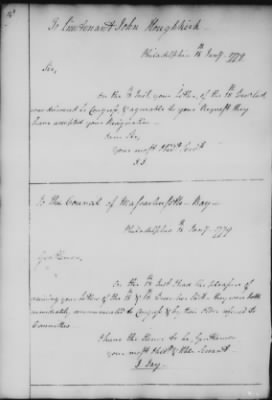 To Lieutenant John Houghkirk
Philadelphia 16th Jany. 1779
Sir,
On the th Inst. your Letter, of the 18th Decr. last
was delivered to Congress, & agreable to your Request they
have accepted your Resignation—
I am Sir,
your most Obedt. Servt.
J. J.
To The Council of Massachusetts-Bay—
Philadelphia 16 Jany. 1779
Gentlemen,
On the th Inst. I had the Pleasure of
receiving your Letters of the & th Decemr. last. they were both
immediately communicated to Congress & by their Order referred to
Committees.
I have the Honor to be, Gentlemen
your most Obedt. & Hble Servant
J. Jay.